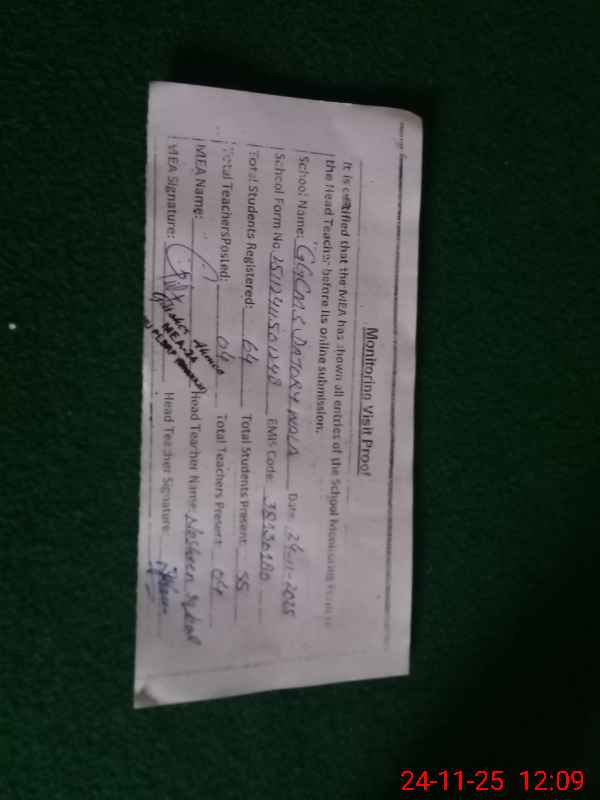 Monitoring Visit Proof
It is certified that the MEA has shown all entries of the School Monitoring
the Head Teacher before its online submission.
School Name: GGCMS DATORY WALA Date 24-11-2025
School Form No 251124115012 EMIS Code: 38130180
Total Students Registered: 64 Total Students Present: 55
Total Teachers Posted: 04 Total Teachers Present: 04
MEA Name: Head Teacher Name: Nasheen
MEA Signature: Head Teacher Signature:
24-11-25 12:09